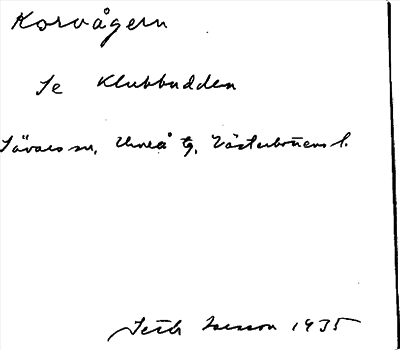 Korvågern
Se Klubbudden
Sävars sn, Umeå tg, Västerbottens l.
Seth 1935